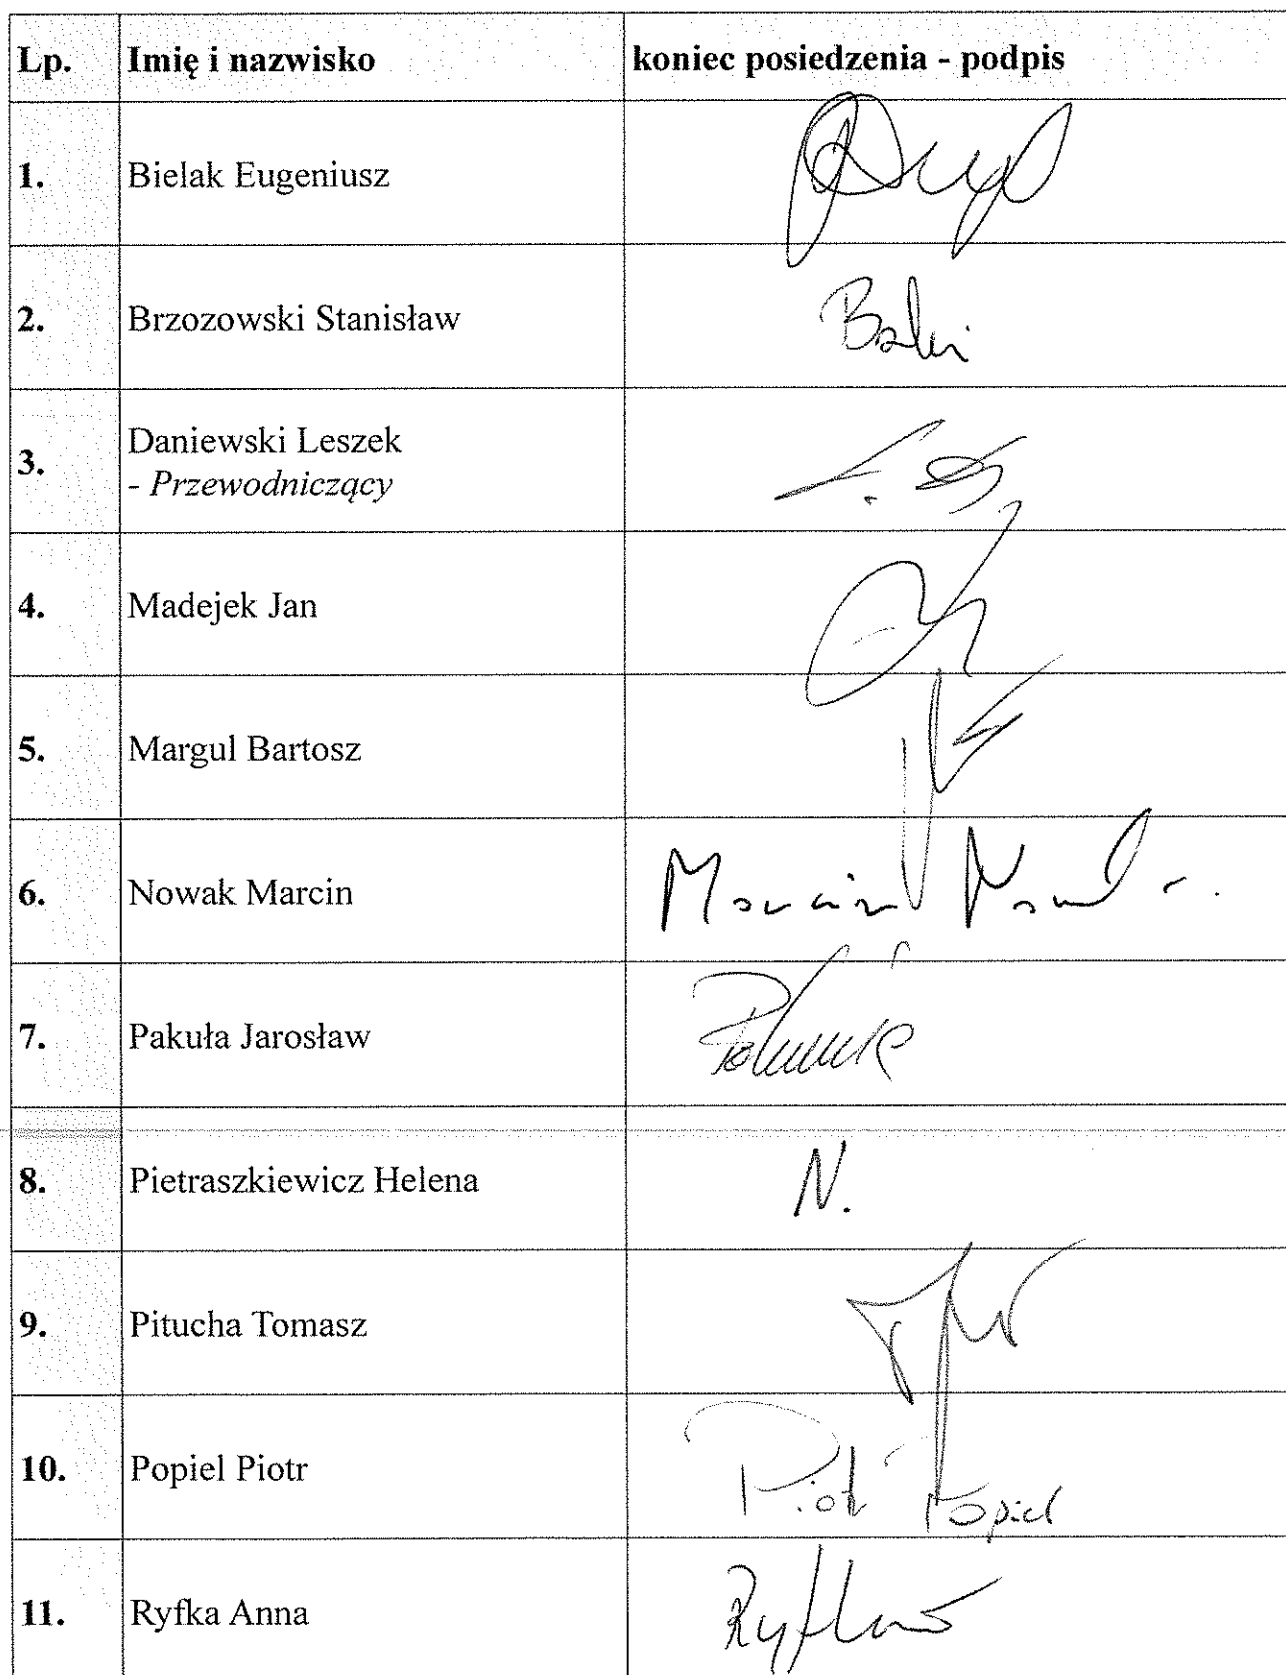 Lp. Imię i nazwisko koniec posiedzenia - podpis
1. Bielak Eugeniusz
2. Brzozowski Stanisław
3. Daniewski Leszek
- Przewodniczący
4. Madejek Jan
5. Margul Bartosz
6. Nowak Marcin Marcin Nowak
7. Pakuła Jarosław
8. Pietraszkiewicz Helena N.
9. Pitucha Tomasz
10. Popiel Piotr Piotr Popiel
11. Ryfka Anna